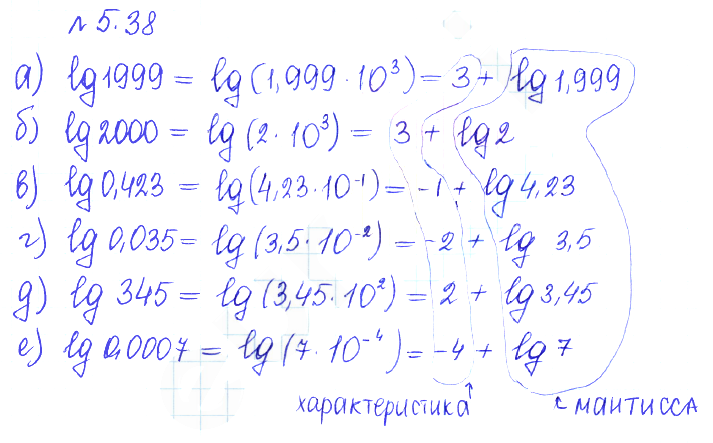 № 5.38
а) lg 1999 = lg(1,999 · 10³) = 3 + lg 1,999
б) lg 2000 = lg(2 · 10³) = 3 + lg 2
в) lg 0,423 = lg(4,23 · 10⁻¹) = -1 + lg 4,23
г) lg 0,035 = lg(3,5 · 10⁻²) = -2 + lg 3,5
д) lg 345 = lg(3,45 · 10²) = 2 + lg 3,45
е) lg 0,0007 = lg(7 · 10⁻⁴) = -4 + lg 7
характеристика ↑ ← мантисса